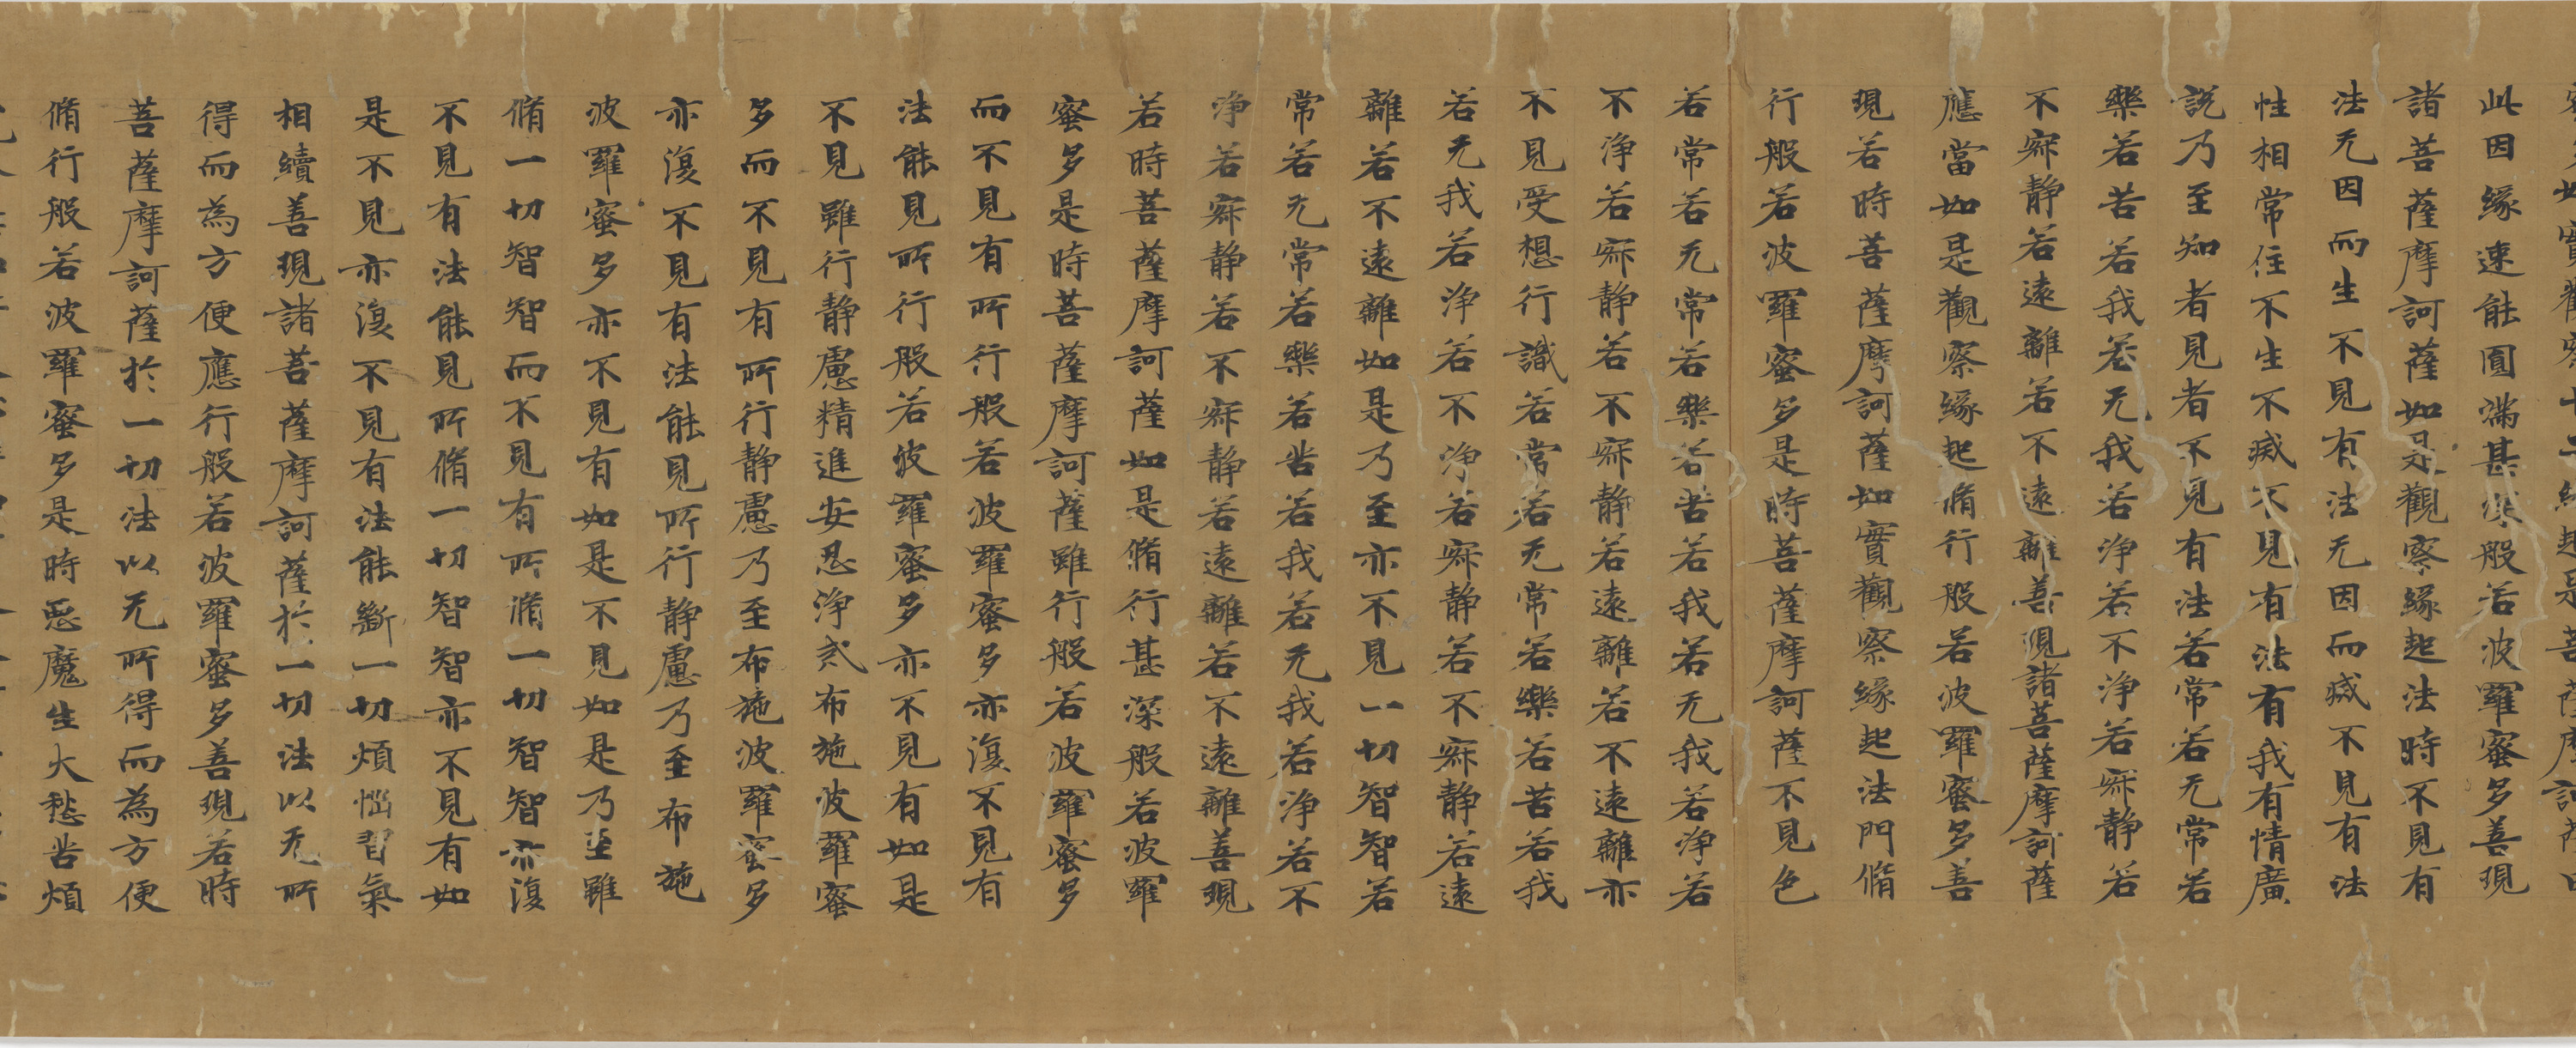 如實觀察十二緣起是菩薩摩訶薩
此因緣速能圓滿甚深般若波羅蜜多善現
諸菩薩摩訶薩如是觀察緣起法時不見有
法无因而生不見有法无因而滅不見有法
性相常住不生不滅不見有法有我有情廣
說乃至知者見者不見有法若常若无常若
樂若苦若我若无我若淨若不淨若寂靜若
不寂靜若遠離若不遠離善現諸菩薩摩訶薩
應當如是觀察緣起脩行般若波羅蜜多善
現若時菩薩摩訶薩如實觀察緣起法門脩
行般若波羅蜜多是時菩薩摩訶薩不見色
若常若无常若樂若苦若我若无我若淨若
不淨若寂靜若不寂靜若遠離若不遠離亦
不見受想行識若常若无常若樂若苦若我
若无我若淨若不淨若寂靜若不寂靜若遠
離若不遠離如是乃至亦不見一切智智若
常若无常若樂若苦若我若无我若淨若不
淨若寂靜若不寂靜若遠離若不遠離善現
若時菩薩摩訶薩如是脩行甚深般若波羅
蜜多是時菩薩摩訶薩雖行般若波羅蜜多
而不見有所行般若波羅蜜多亦復不見有
法能見所行般若波羅蜜多亦不見有如是
不見雖行靜慮精進安忍淨戒布施波羅蜜
多而不見有所行靜慮乃至布施波羅蜜多
亦復不見有法能見所行靜慮乃至布施
波羅蜜多亦不見有如是不見如是乃至雖
脩一切智智而不見有所脩一切智智亦復
不見有法能見所脩一切智智亦不見有如
是不見亦復不見有法能斷一切煩惱習氣
相續善現諸菩薩摩訶薩於一切法以无所
得而為方便應行般若波羅蜜多善現若時
菩薩摩訶薩於一切法以无所得而為方便
脩行般若波羅蜜多是時惡魔生大愁苦煩